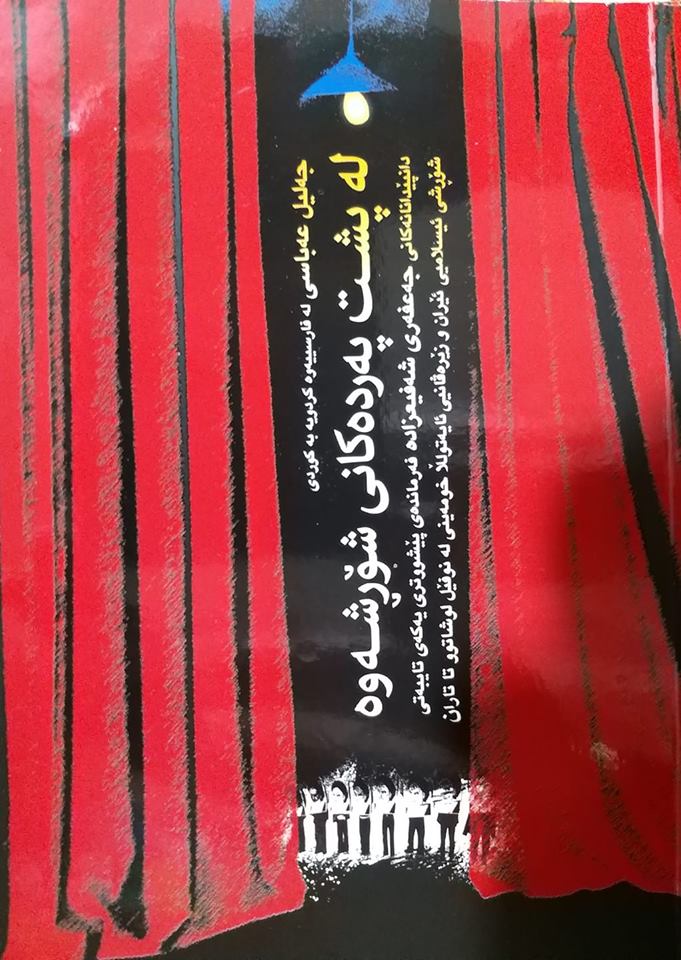 جەلیل عەباسی لە فارسییەوە کردویە بە کوردی
لە پشت پەردەکانی شۆڕشەوە
دانپێدانانەکانی جەعفەری شەفیعزادە فەرماندەی پێشووتری یەکەی تایبەتی
شۆڕشی ئیسلامیی ئێران و زێرەڤانیی ئایەتوللا خومەینی لە نوفێل لوشاتوو تا تاران